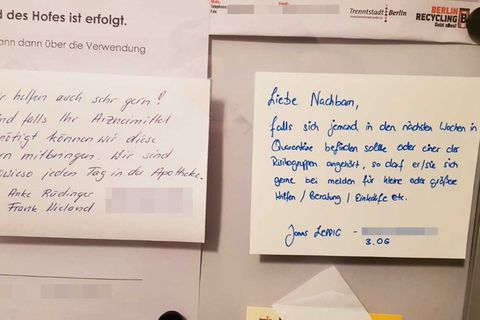 d des Hofes ist erfolgt.
ann dann über die Verwendung
Telephone
Fax:
Email:
Trenntstadt Berlin
www.trenntstadt-berlin.de
BERLIN
RECYCLING
Geht alles!
B
r helfen auch sehr gern!
nd falls Ihr Arzneimittel
nötigt können wir diese
en mitbringen. Wir sind
owieso jeden Tag in der Apotheke.
Anke Rüdinger
Frank Nieland
Liebe Nachbarn,
falls sich jemand in den nächsten Wochen in
Quarantäne befinden sollte oder einer der
Risikogruppen angehört, so darf er/sie sich
gerne bei melden für kleine oder größere
Hilfen / Beratung / Einkäufe etc.
Jonas Leppig -
3. OG